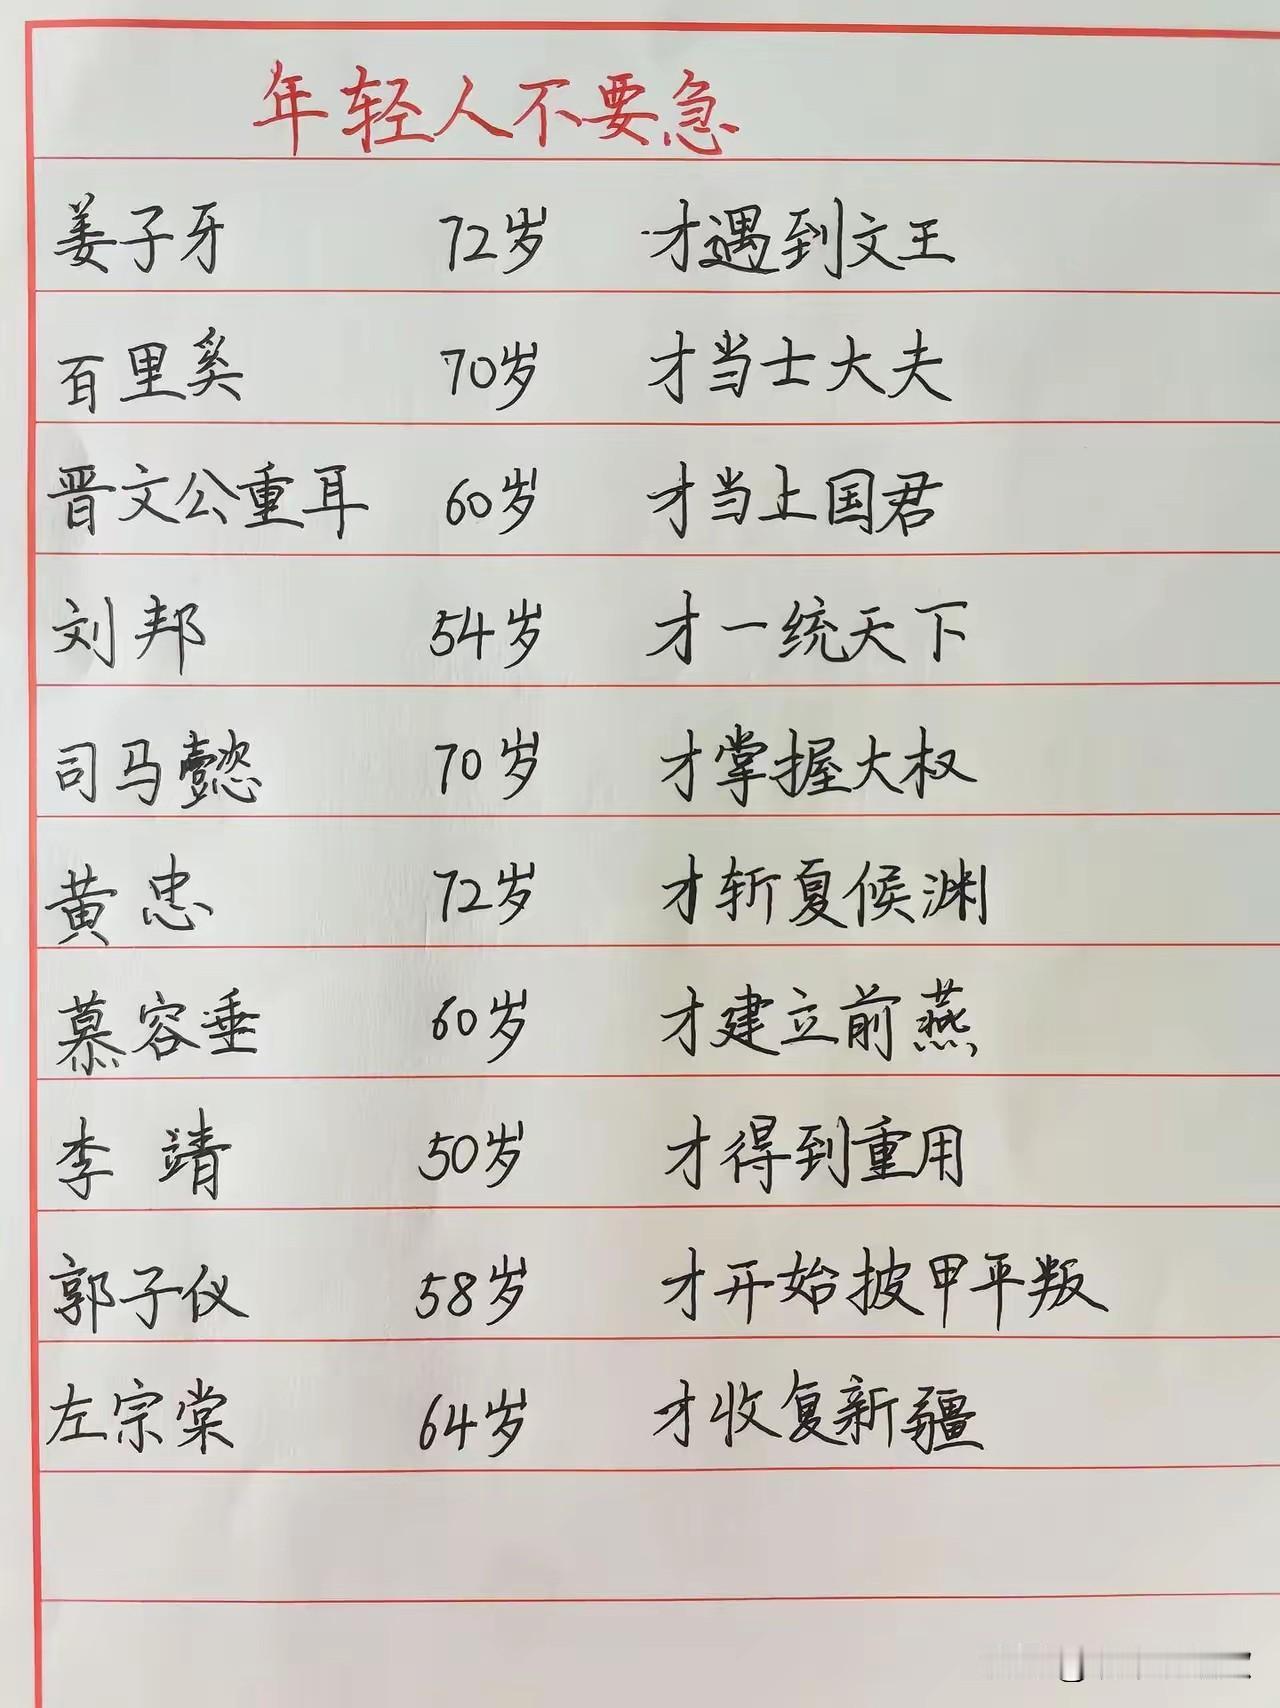 年轻人不要急
姜子牙 72岁 才遇到文王
百里奚 70岁 才当士大夫
晋文公重耳 60岁 才当上国君
刘邦 54岁 才一统天下
司马懿 70岁 才掌握大权
黄忠 72岁 才斩夏候渊
慕容垂 60岁 才建立前燕
李靖 50岁 才得到重用
郭子仪 58岁 才开始披甲平叛
左宗棠 64岁 才收复新疆